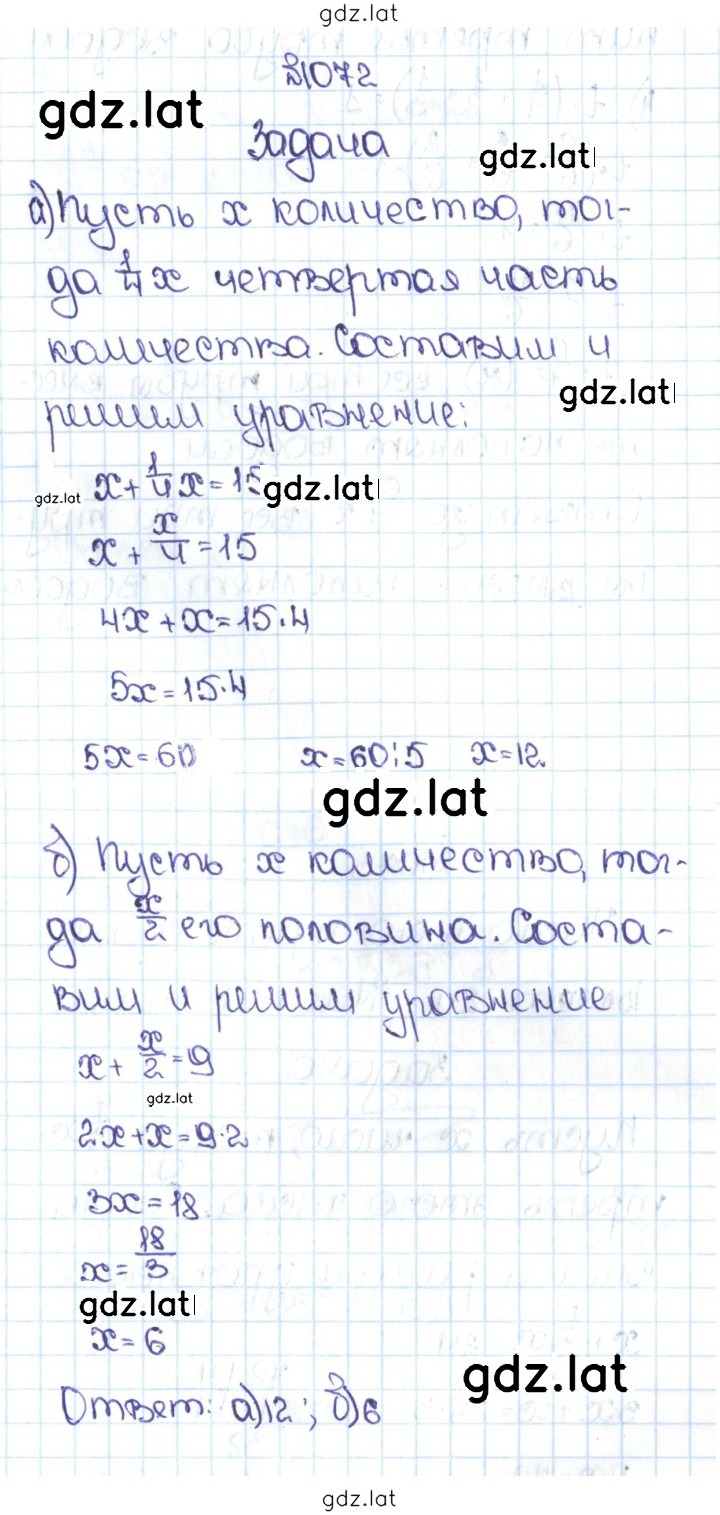 gdz.lat
№1072
gdz.lat
Задача
gdz.lat
а) Пусть x количество, тог-
да 1/4 x четвертая часть
количества. Составим и
gdz.lat
решим уравнение:
gdz.lat x + 1/4 x = 15 gdz.lat
x + x/4 = 15
4x + x = 15·4
5x = 15·4
5x = 60 x = 60:5 x = 12.
gdz.lat
б) Пусть x количество, тог-
да x/2 его половина. Соста-
вим и решим уравнение
x + x/2 = 9
gdz.lat
2x + x = 9·2
3x = 18
x = 18/3
gdz.lat
x = 6
gdz.lat
Ответ: а) 12 ; б) 6
gdz.lat